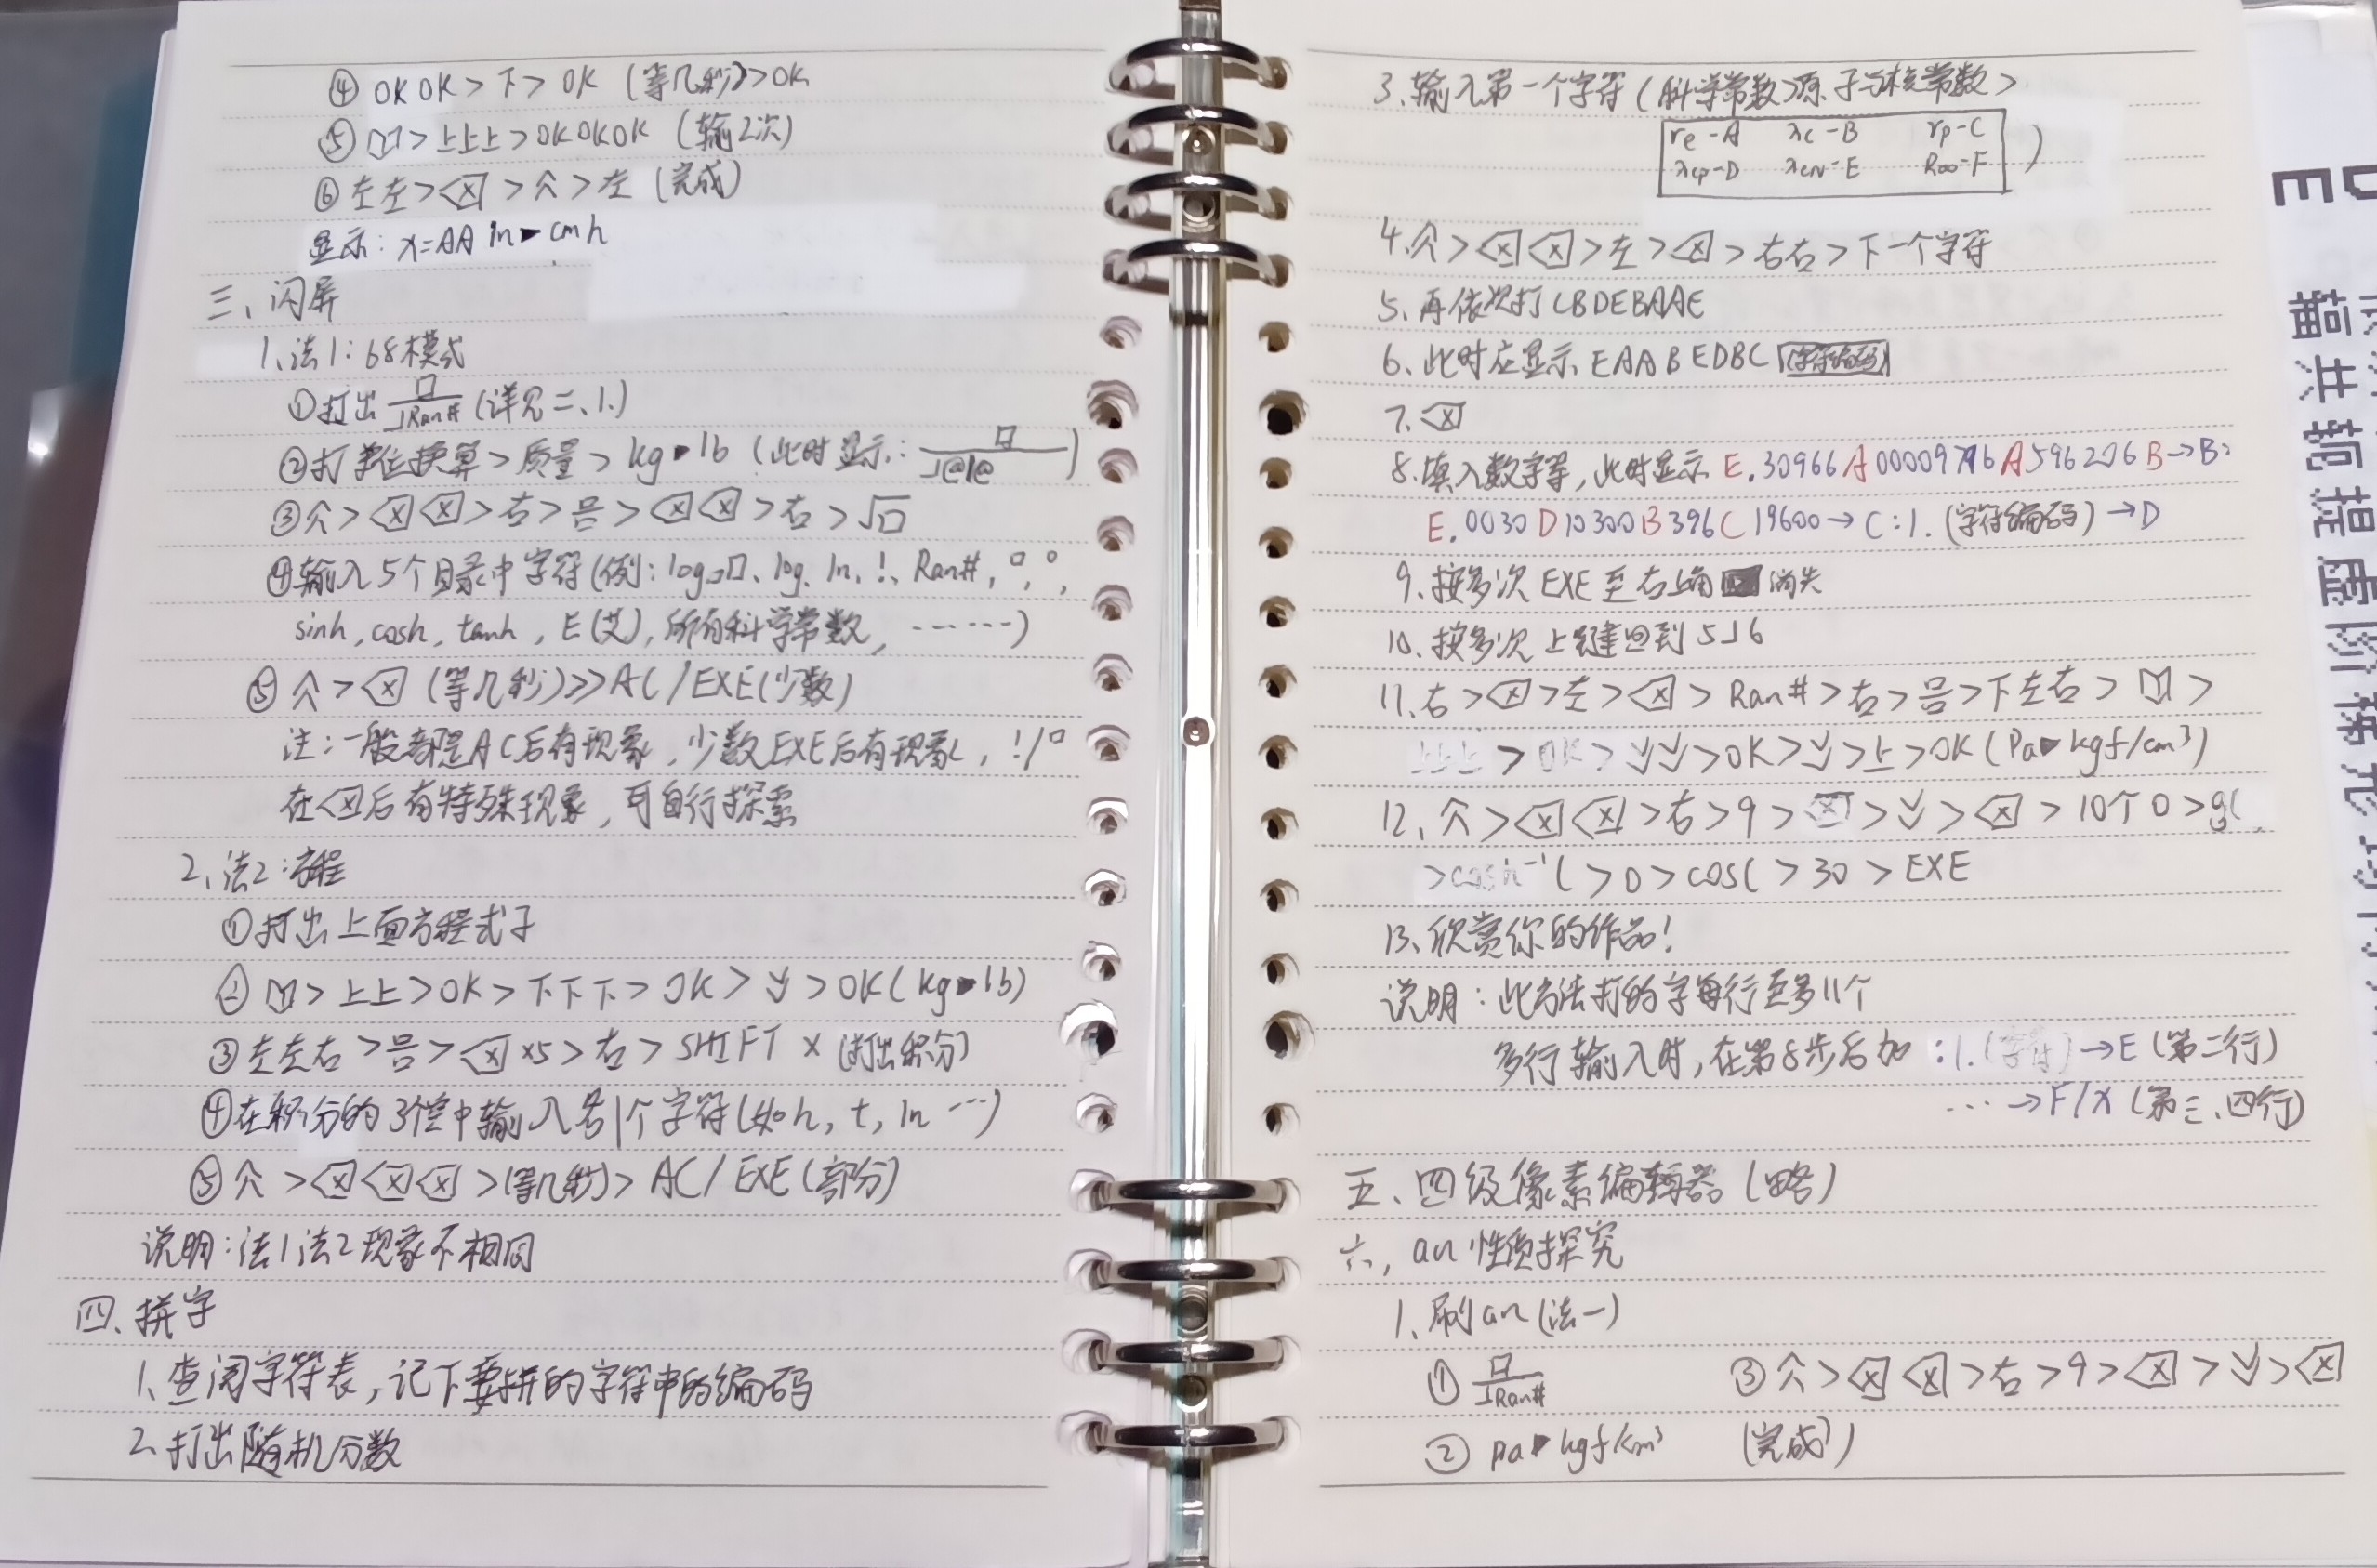 ④ OK OK > 下 > OK (等几秒) > OK
⑤ > 上上上 > OKOKOK (输2次)
⑥ 左左 > ⌫ > 个 > 左 (完成)
显示: x=AA in▶cm h
三、闪屏
1、法1: 68模式
①打出 □/⌋Ran# (详见二、1.)
②打单位换算 > 质量 > kg▶lb (此时显示: □/⌋@l@)
③个 > ⌫⌫ > 右 > 吕 > ⌫⌫ > 右 > √□
④输入5个目录中字符(例: log□□、log、ln、!、Ran#, □, °,
sinh, cosh, tanh, E(艾), 所有科学常数, ……)
⑤ 个 > ⌫ (等几秒) >> AC/EXE(少数)
注: 一般都是AC后有现象, 少数EXE后有现象, !/□
在⌫后有特殊现象, 可自行探索
2、法2: 方程
①打出上面方程式子
② > 上上 > OK > 下下下 > OK > > OK (kg▶lb)
③左左右 > 吕 > ⌫×5 > 右 > SHIFT x (打出积分)
④在积分的3个空中输入各1个字符(如h, t, ln …)
⑤ 个 > ⌫⌫⌫ > (等几秒) > AC/EXE(部分)
说明: 法1法2现象不相同
四、拼字
1、查阅字符表, 记下要拼的字符中的编码
2、打出随机分数
3、输入第一个字符 (科学常数 > 原子与核常数 >
re-A λc-B rp-C
λcp-D λcn-E R∞-F )
4、个 > ⌫⌫ > 左 > ⌫ > 右右 > 下一个字符
5、再依次打CBDEBAAE
6、此时应显示 EAABEDBC [字符编码]
7、⌫
8、填入数字等, 此时显示 E.30966A0000976A596206B→B:
E.0030D10300B396C19600→C:1.(字符编码)→D
9、按多次EXE至右上角 消失
10、按多次上键回到5⌋6
11、右 > ⌫ > 左 > ⌫ > Ran# > 右 > 吕 > 下左右 > >
上上上 > OK > > OK > > 上 > OK (Pa▶kgf/cm³)
12、个 > ⌫⌫ > 右 > 9 > ⌫ > > ⌫ > 10个0 >
> cosh⁻¹( > 0 > cos( > 30 > EXE
13、欣赏你的作品!
说明: 此方法打的字每行至多11个
多行输入时, 在第8步后加 :1.(字符)→E (第二行)
…→F/x (第三、四行)
五、四级像素编辑器 (略)
六、an性质探究
1、刷an (法一)
① □/⌋Ran# ③个 > ⌫⌫ > 右 > 9 > ⌫ > > ⌫
② Pa▶kgf/cm³ (完成)